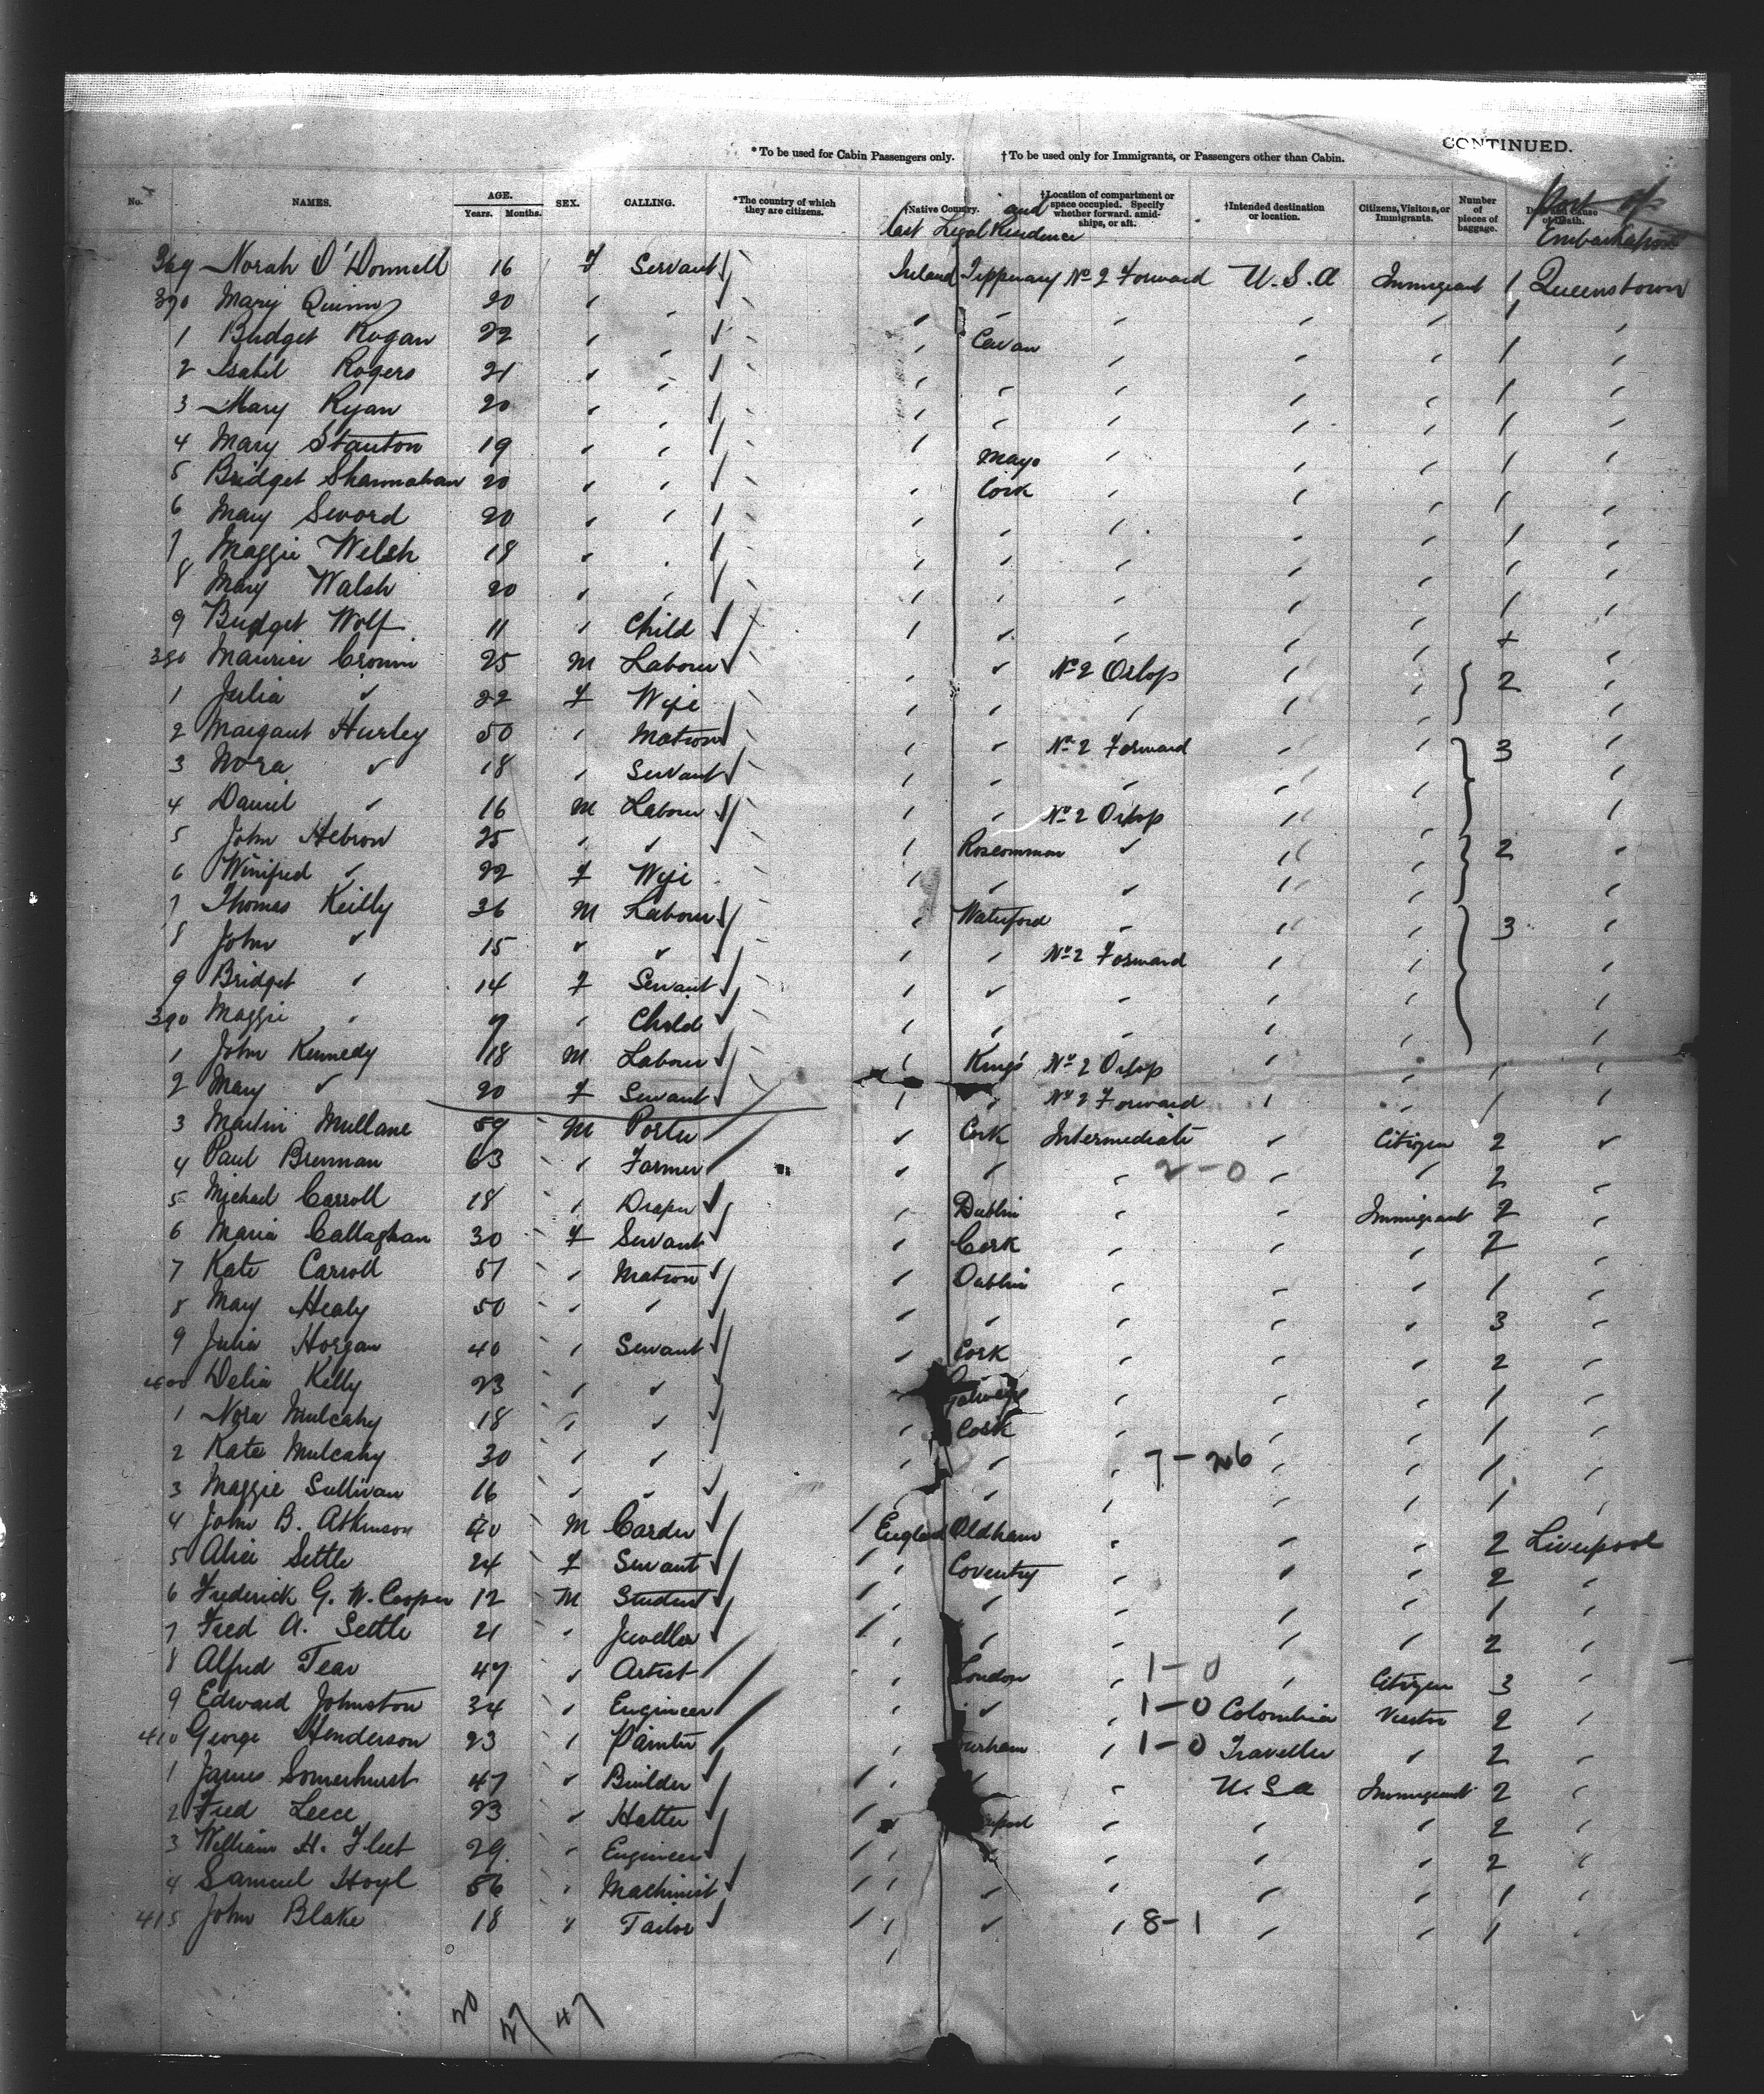 CONTINUED.
* To be used for Cabin Passengers only. † To be used only for Immigrants, or Passengers other than Cabin.
No. NAMES. AGE. Years. Months. SEX. CALLING. *The country of which they are citizens. †Native Country. and last Legal Residence †Location of compartment or space occupied. Specify whether forward, amidships, or aft. †Intended destination or location. Citizens, Visitors, or Immigrants. Number of pieces of baggage. Port of Embarkation
369 Norah O'Donnell 16 F Servant Ireland Tipperary No 2 Forward U.S.A Immigrant 1 Queenstown
370 Mary Quinn 20 1
1 Bridget Rogan 22 Cavan 1
2 Isabel Rogers 21 1
3 Mary Ryan 20 1
4 Mary Stanton 19 Mayo 1
5 Bridget Shannahan 20 Cork 1
6 Mary Sword 20 1
7 Maggie Welsh 18 1
8 Mary Walsh 20 1
9 Bridget Wolf 11 Child +
380 Maurice Cronin 25 M Labourer No 2 Orlop 2
1 Julia ✓ 22 F Wife
2 Margaret Hurley 50 Matron No 2 Forward 3
3 Nora ✓ 18 Servant
4 Daniel ✓ 16 M Labourer No 2 Orlop
5 John Hebron 25 Roscommon 2
6 Winifred ✓ 22 F Wife
7 Thomas Keilly 36 M Labourer Waterford 3
8 John ✓ 15 No 2 Forward
9 Bridget 14 F Servant
390 Maggie 9 Child
1 John Kennedy 18 M Labourer King's No 2 Orlop 1
2 Mary ✓ 20 F Servant No 2 Forward 1
3 Martin Mullane 59 M Porter Cork Intermediate Citizen 2
4 Paul Brennan 63 Farmer 2-0 2
5 Michael Carroll 18 Draper Dublin Immigrant 2
6 Maria Callaghan 30 F Servant Cork 2
7 Kate Carroll 51 Matron Dublin 1
8 Mary Healy 50 3
9 Julia Horgan 40 Servant Cork 2
400 Delia Kelly 23 Galway 1
1 Nora Mulcahy 18 Cork 1
2 Kate Mulcahy 30 7-26 1
3 Maggie Sullivan 16 1
4 John B. Atkinson 40 M Carder England Oldham 2 Liverpool
5 Alice Settle 24 F Servant Coventry 2
6 Frederick G. W. Cooper 12 M Student 1
7 Fred A. Settle 21 Jeweller 2
8 Alfred Tear 47 Artist London 1-0 Citizen 3
9 Edward Johnston 34 Engineer 1-0 Colombia Visitor 2
410 George Henderson 23 Painter Durham 1-0 Traveller 2
1 James Somerhurst 47 Builder U.S.A Immigrant 2
2 Fred Leece 23 Hatter 2
3 William H. Fleet 29 Engineer 2
4 Samuel Hoyl 56 Machinist 1
415 John Blake 18 Tailor 8-1 1
20 27 47